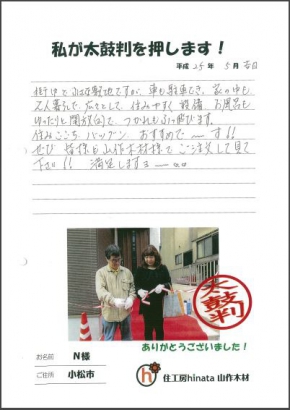 私が太鼓判を押します!
平成 25年 5月 吉日
街中で小さな敷地ですが、車も駐車でき、家の中も
2人暮らしで、広々として、住みやすく 設備 お風呂も
ゆったりと開放的で、つかれもふっ飛びます。
住みごこち バツグン おすすめで〜す!!
ぜひ 皆様も山作木材様でご注文して見て
下さい!! 満足しますヨ〜
太鼓判
ありがとうございました!
お名前 N様
ご住所 小松市
h 住工房hinata 山作木材